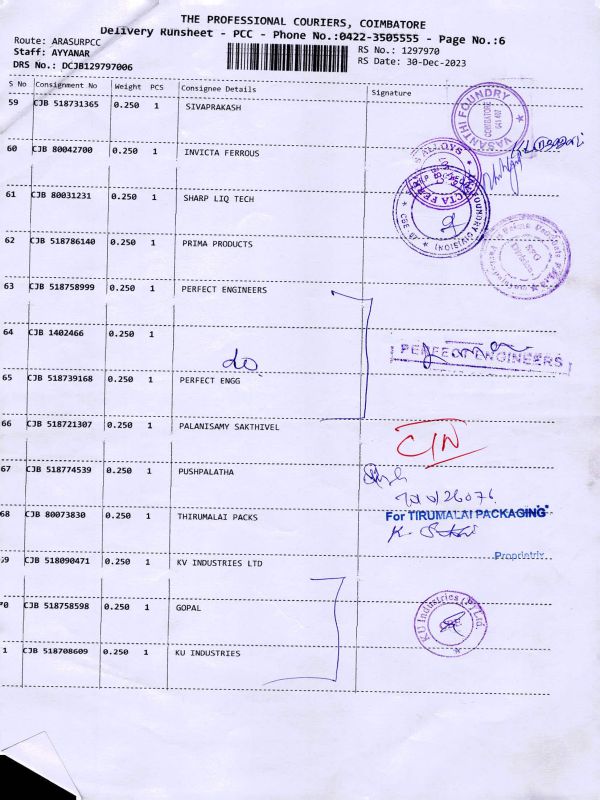 THE PROFESSIONAL COURIERS, COIMBATORE
Delivery Runsheet - PCC - Phone No.:0422-3505555 - Page No.:6
Route: ARASURPCC
RS No.: 1297970
Staff: AYYANAR
RS Date: 30-Dec-2023
DRS No.: DCJB129797006
S No Consignment No Weight PCS Consignee Details Signature
59 CJB 518731365 0.250 1 SIVAPRAKASH
VASANTHI FOUNDRY COIMBATORE
60 CJB 80042700 0.250 1 INVICTA FERROUS
61 CJB 80031231 0.250 1 SHARP LIQ TECH
62 CJB 518786140 0.250 1 PRIMA PRODUCTS
63 CJB 518758999 0.250 1 PERFECT ENGINEERS
64 CJB 1402466 0.250 1
do
PERFECT ENGINEERS
65 CJB 518739168 0.250 1 PERFECT ENGG
66 CJB 518721307 0.250 1 PALANISAMY SAKTHIVEL
C/N
67 CJB 518774539 0.250 1 PUSHPALATHA
68 CJB 80073830 0.250 1 THIRUMALAI PACKS
For TIRUMALAI PACKAGING
Proprietrix
69 CJB 518090471 0.250 1 KV INDUSTRIES LTD
70 CJB 518758598 0.250 1 GOPAL
KU Industries (P) Ltd.
1 CJB 518708609 0.250 1 KU INDUSTRIES